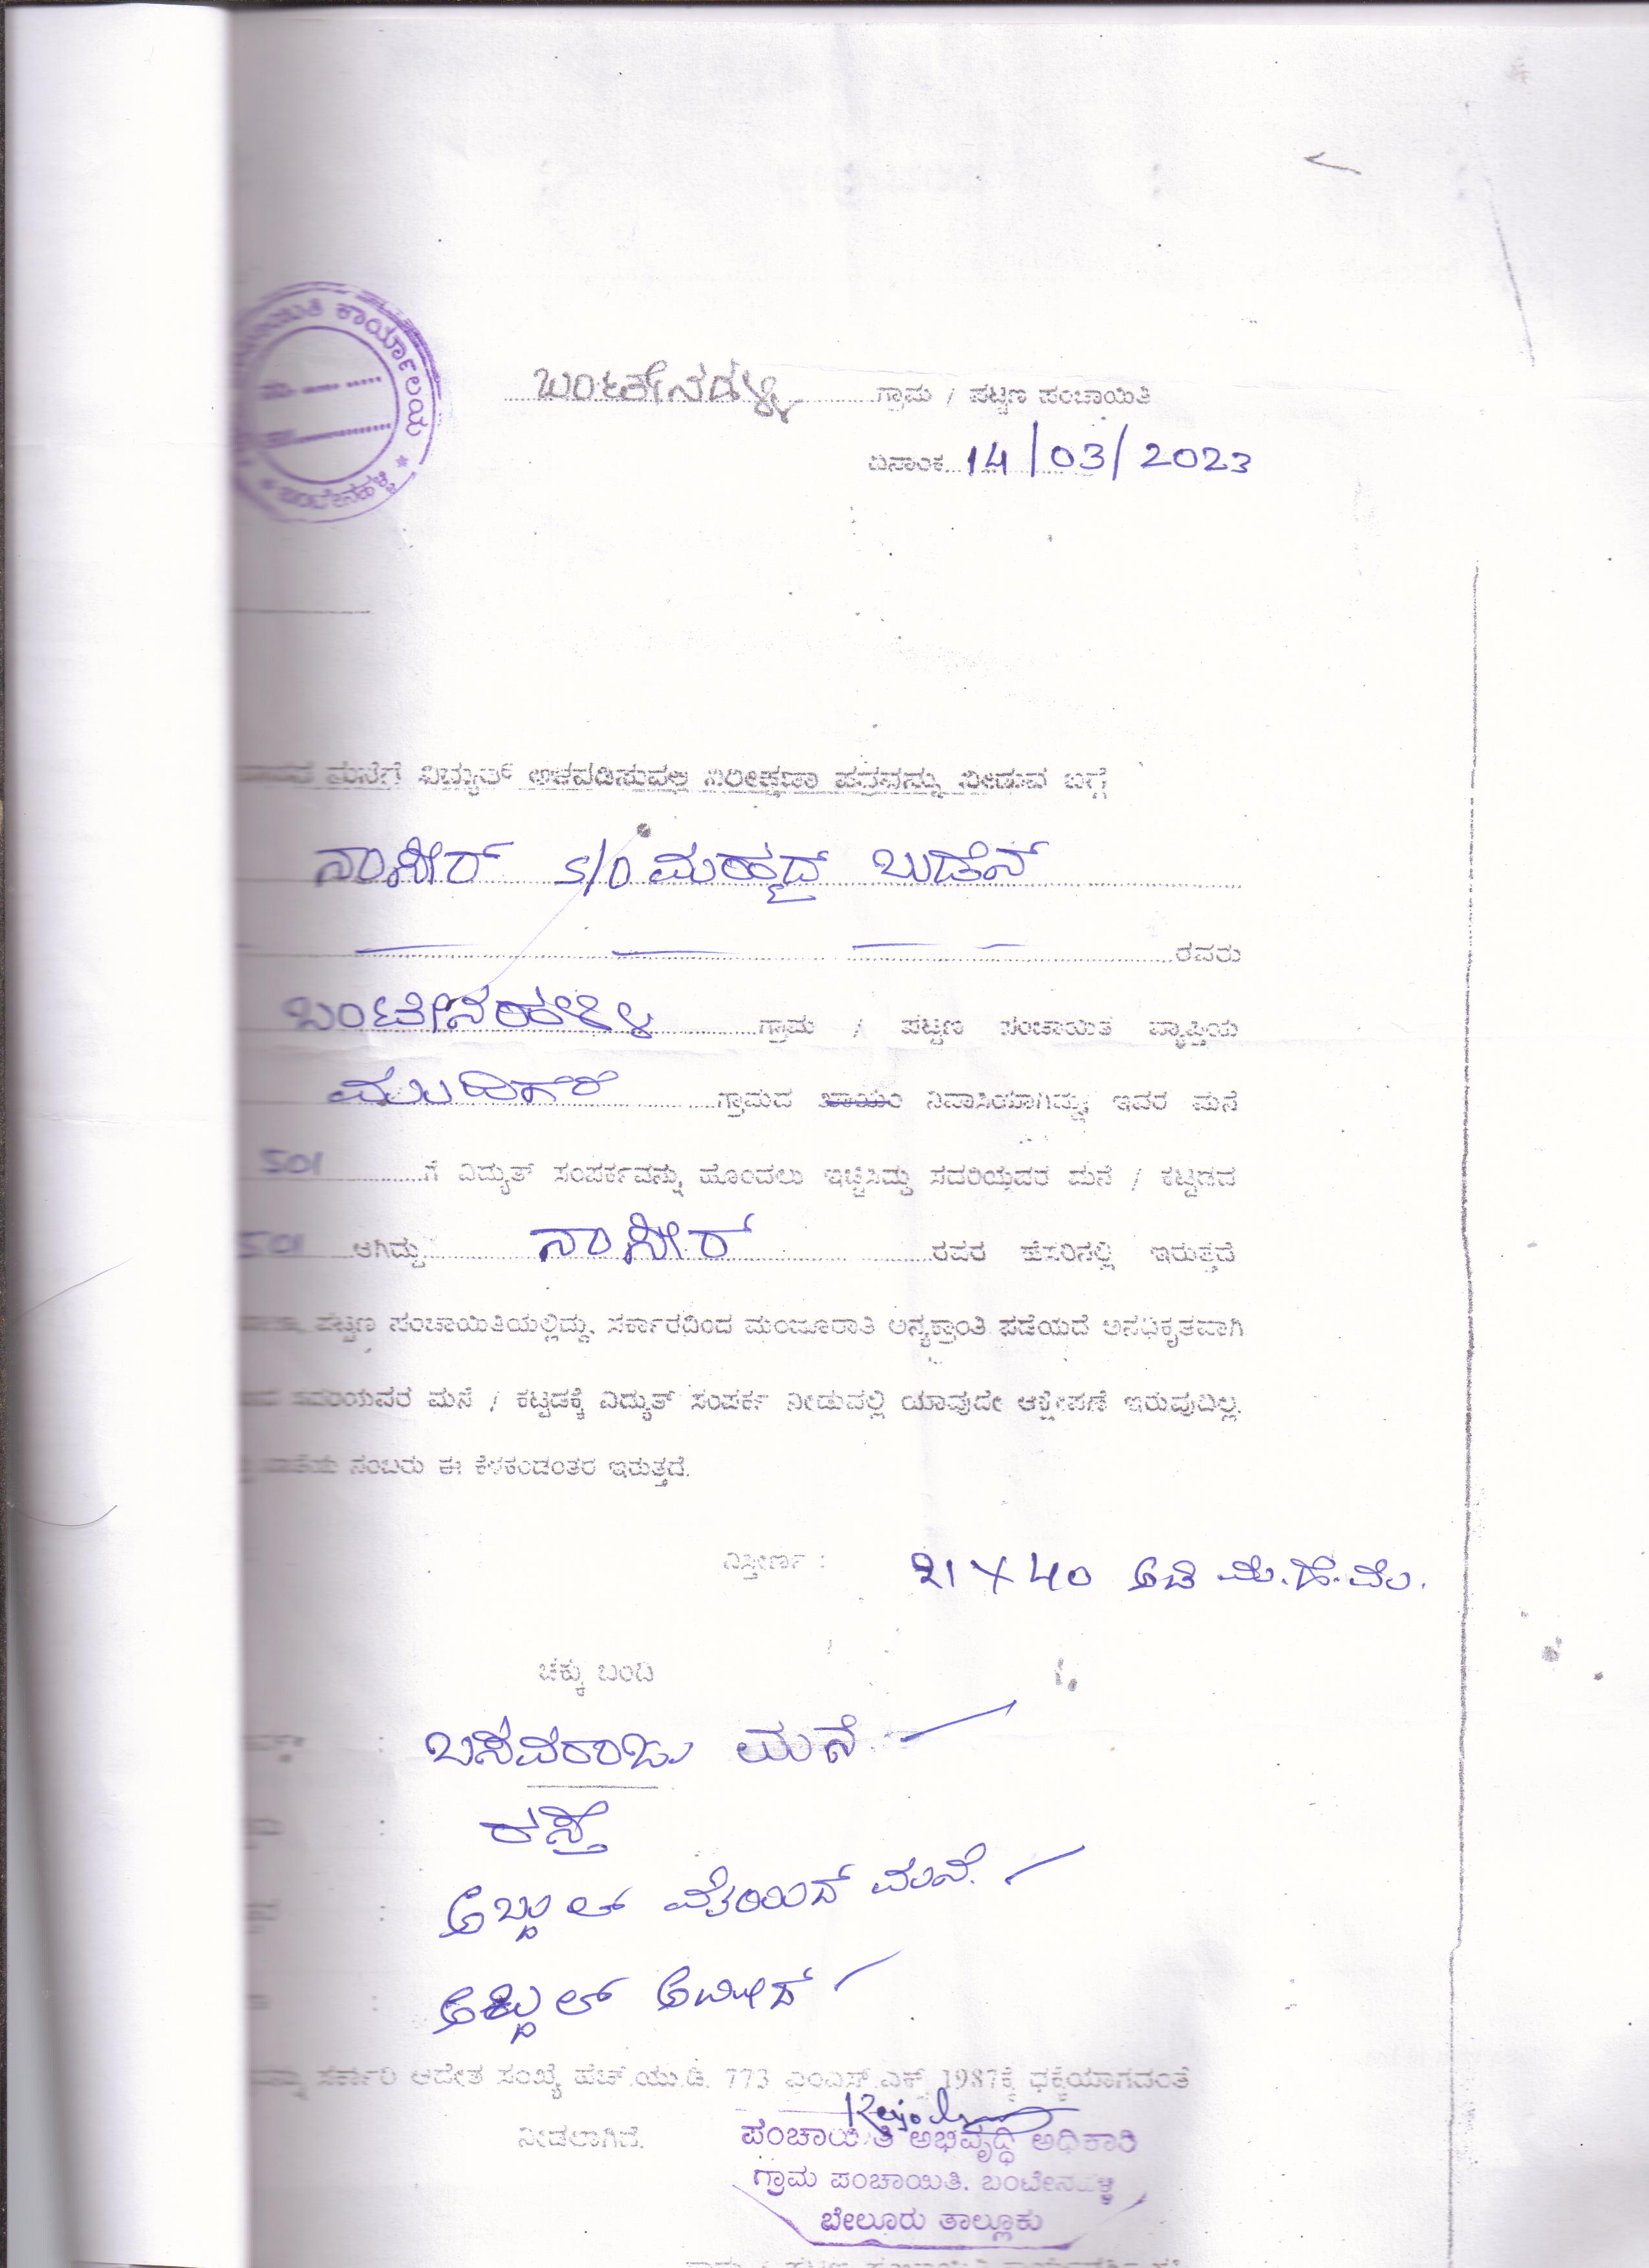 ಕಾರ್ಯಾಲಯ
ಬಂಟೇನಹಳ್ಳಿ
ಬಂಟೇನಹಳ್ಳಿ ಗ್ರಾಮ / ಪಟ್ಟಣ ಪಂಚಾಯಿತಿ
ದಿನಾಂಕ 14/03/2023
ಮನೆಗೆ ವಿದ್ಯುತ್ ಅಳವಡಿಸುವಲ್ಲಿ ನಿರೀಕ್ಷಣಾ ಪತ್ರವನ್ನು ನೀಡುವ ಬಗ್ಗೆ
S/O ಮಹಮ್ಮದ್ ಬುಡೆನ್
ರವರು
ಬಂಟೇನಹಳ್ಳಿ ಗ್ರಾಮ / ಪಟ್ಟಣ ಪಂಚಾಯಿತಿ ವ್ಯಾಪ್ತಿಯ
ಗ್ರಾಮದ ಖಾಯಂ ನಿವಾಸಿಯಾಗಿದ್ದು, ಇವರ ಮನೆ
501 ಗೆ ವಿದ್ಯುತ್ ಸಂಪರ್ಕವನ್ನು ಹೊಂದಲು ಇಚ್ಚಿಸಿದ್ದು ಸದರಿಯವರ ಮನೆ / ಕಟ್ಟಡದ
501 ಆಗಿದ್ದು ರವರ ಹೆಸರಿನಲ್ಲಿ ಇರುತ್ತದೆ
ಪಟ್ಟಣ ಪಂಚಾಯಿತಿಯಲ್ಲಿದ್ದು, ಸರ್ಕಾರದಿಂದ ಮಂಜೂರಾತಿ ಅನ್ಯಕ್ರಾಂತಿ ಪಡೆಯದೆ ಅನಧಿಕೃತವಾಗಿ
ಸದರಿಯವರ ಮನೆ / ಕಟ್ಟಡಕ್ಕೆ ವಿದ್ಯುತ್ ಸಂಪರ್ಕ ನೀಡುವಲ್ಲಿ ಯಾವುದೇ ಆಕ್ಷೇಪಣೆ ಇರುವುದಿಲ್ಲ.
ಖಾತೆಯ ನಂಬರು ಈ ಕೆಳಕಂಡಂತರ ಇರುತ್ತದೆ.
ವಿಸ್ತೀರ್ಣ : 21 X 40 ಅಡಿ
ಚಕ್ಕು ಬಂದಿ
: ಬಸವರಾಜು ಮನೆ
: ರಸ್ತೆ
: ಅಬ್ದುಲ್ ಮನೆ.
: ಅಬ್ದುಲ್
ಸರ್ಕಾರಿ ಆದೇಶ ಸಂಖ್ಯೆ ಹೆಚ್.ಯು.ಡಿ. 773 ಎಂಎಸ್.ಎಕ್ಸ್ 1987ಕ್ಕೆ ಧಕ್ಕೆಯಾಗದಂತೆ
ನೀಡಲಾಗಿದೆ.
ಪಂಚಾಯಿತಿ ಅಭಿವೃದ್ಧಿ ಅಧಿಕಾರಿ
ಗ್ರಾಮ ಪಂಚಾಯಿತಿ. ಬಂಟೇನಹಳ್ಳಿ
ಬೇಲೂರು ತಾಲ್ಲೂಕು